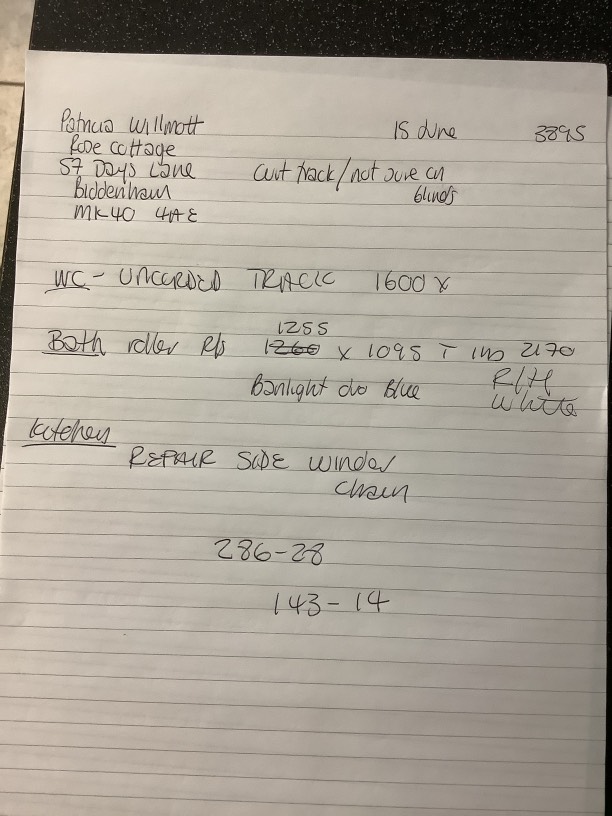 Patricia Willmott 15 June 3895
Rose Cottage
57 Days Lane curt track/not sure on
Biddenham blinds
MK40 4AE
WC - UNCORDED TRACK 1600 x
1255
Bath roller R/s 1260 x 1095 T ins 2170
Banlight duo Blue R/H
White
Kitchen
REPAIR SIDE winder
chain
286-28
143-14